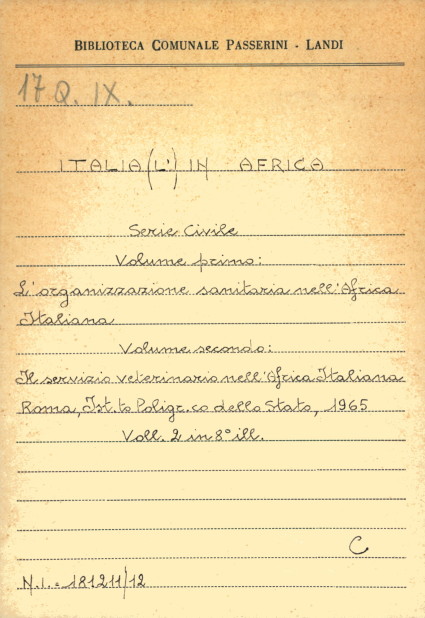 BIBLIOTECA COMUNALE PASSERINI - LANDI
17 Q. IX.
ITALIA (L') IN AFRICA
Serie Civile
Volume primo:
L'organizzazione sanitaria nell'Africa
Italiana
Volume secondo:
Il servizio veterinario nell'Africa Italiana
Roma, Ist.to Poligr.co dello Stato, 1965
Voll. 2 in 8° ill.
C
N.I. = 181211/12